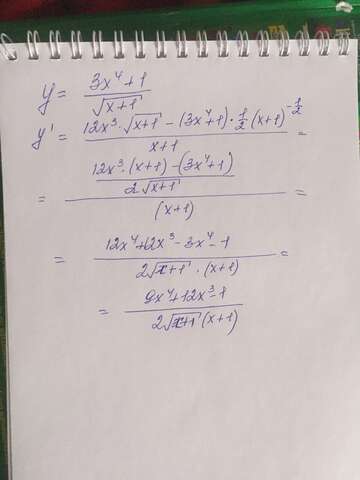 y = (3x⁴+1)/√(x+1)
y' = (12x³·√(x+1) - (3x⁴+1)·1/2(x+1)^(-1/2))/(x+1) =
= ((12x³·(x+1) - (3x⁴+1))/(2√(x+1)))/((x+1)) =
= (12x⁴+12x³-3x⁴-1)/(2√(x+1)·(x+1)) =
= (9x⁴+12x³-1)/(2√(x+1)(x+1))